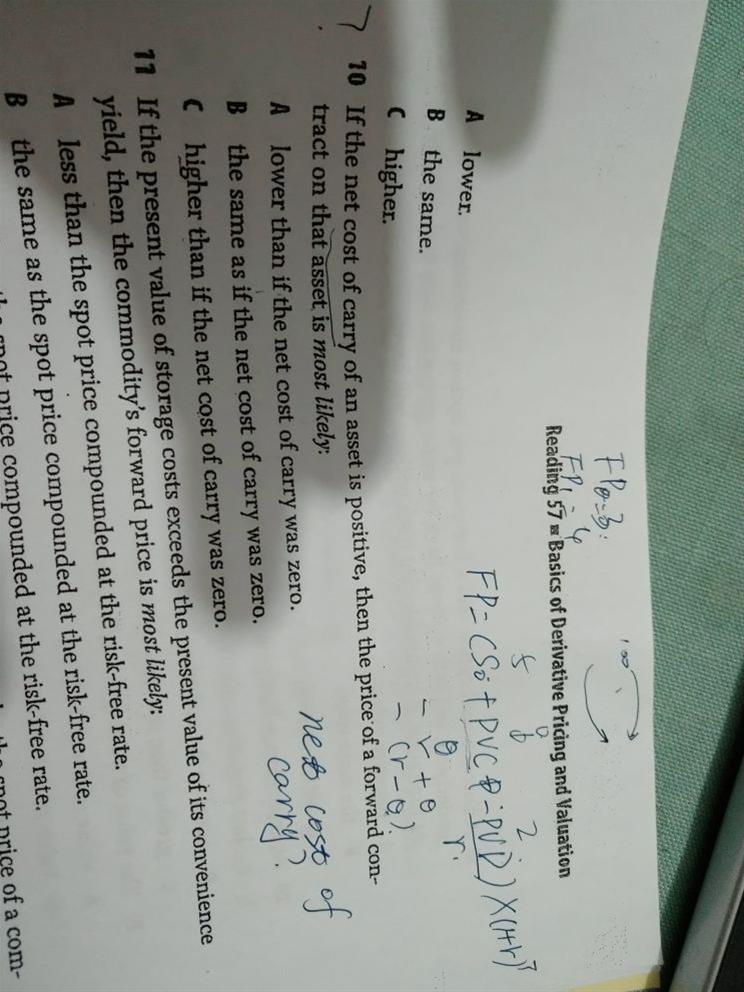 FP0=3.
FP1=4
Reading 57 ■ Basics of Derivative Pricing and Valuation
FP=(S0+PVC-PVD)×(1+r)^T
- r+θ
- (r-θ).
A lower.
B the same.
C higher.
7 10 If the net cost of carry of an asset is positive, then the price of a forward con-
tract on that asset is most likely:
A lower than if the net cost of carry was zero.
B the same as if the net cost of carry was zero.
C higher than if the net cost of carry was zero.
net cost of
carry?
11 If the present value of storage costs exceeds the present value of its convenience
yield, then the commodity's forward price is most likely:
A less than the spot price compounded at the risk-free rate.
B the same as the spot price compounded at the risk-free rate.
spot price compounded at the risk-free rate
spot price of a com-